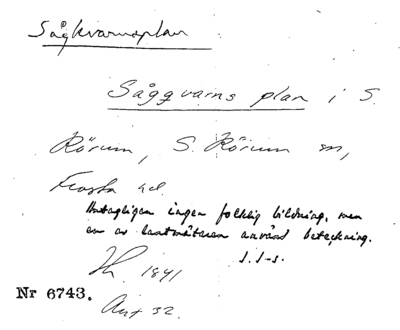 Sågkvarnsplan
Såggvarns plan i S.
Rörum, S. Rörum sn,
Frosta hd.
Antagligen ingen folklig bildning, men
en av lantmätaren använd beteckning.
S. I-s.
1841
Nr 6743.
32.